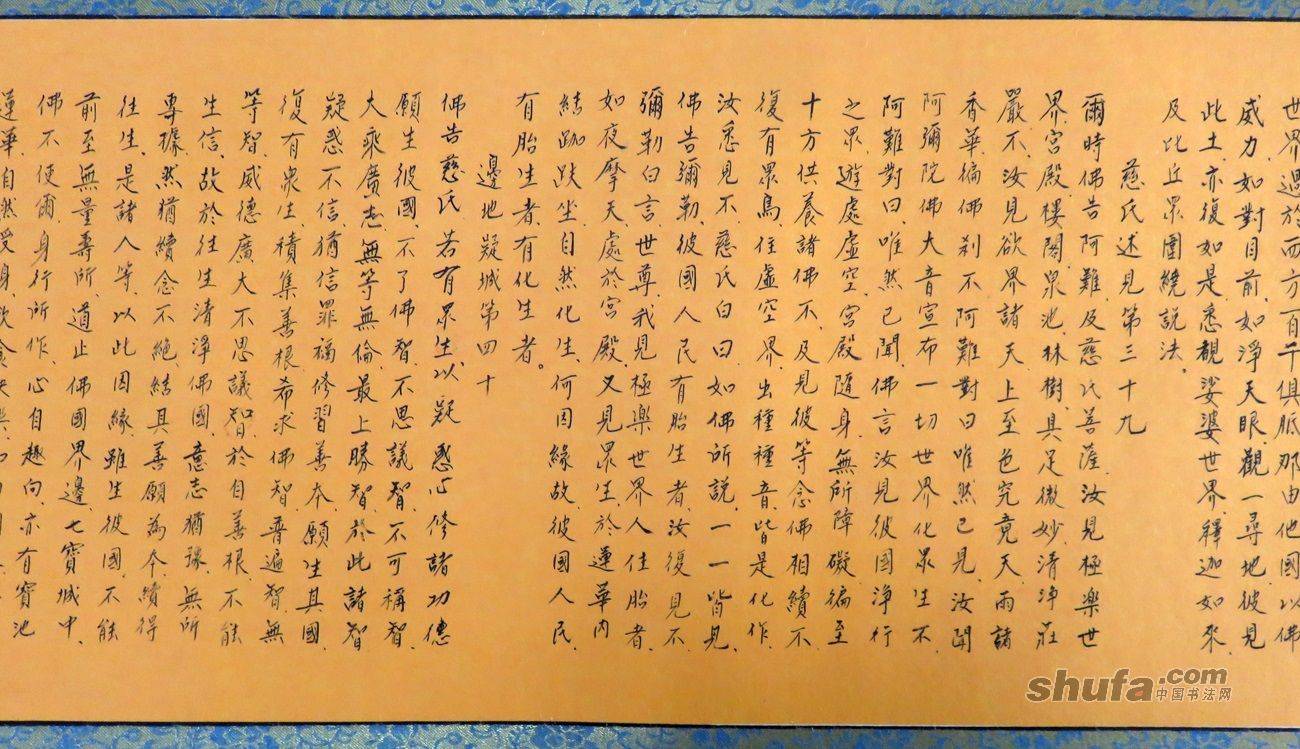 世界過於西方百千俱胝那由他國以佛
威力、如對目前、如淨天眼、觀一尋地、彼見
此土、亦復如是、悉覩娑婆世界、釋迦如來、
及比丘眾圍繞說法。
慈氏述見第三十九
爾時佛告阿難、及慈氏菩薩、汝見極樂世
界、宮殿、樓閣、泉池、林樹、具足微妙、清淨莊
嚴不、汝見欲界諸天、上至色究竟天、雨諸
香華、徧佛刹不、阿難對曰、唯然已見、汝聞
阿彌陀佛大音宣布一切世界、化眾生不、
阿難對曰、唯然已聞、佛言、汝見彼國淨行
之眾、遊處虛空、宮殿隨身、無所障礙、徧至
十方供養諸佛不、及見彼等念佛相續不、
復有眾鳥、住虛空界、出種種音、皆是化作、
汝悉見不、慈氏白曰、如佛所說、一一皆見、
佛告彌勒、彼國人民有胎生者、汝復見不、
彌勒白言、世尊、我見極樂世界人住胎者、
如夜摩天、處於宮殿、又見眾生、於蓮華內
結跏趺坐、自然化生、何因緣故、彼國人民、
有胎生者、有化生者。
邊地疑城第四十
佛告慈氏、若有眾生、以疑惑心修諸功德
願生彼國、不了佛智、不思議智、不可稱智、
大乘廣志、無等無倫、最上勝智、於此諸智
疑惑不信、猶信罪福、修習善本、願生其國、
復有眾生、積集善根、希求佛智、普遍智、無
等智、威德廣大不思議智、於自善根、不能
生信、故於往生清淨佛國、意志猶豫、無所
專據、然猶續念不絕、結其善願為本、續得
往生、是諸人等、以此因緣、雖生彼國、不能
前至無量壽所、道止佛國界邊、七寶城中、
佛不使爾、身行所作、心自趣向、亦有寶池
蓮華、自然受身、飲食
shufa.com
中国书法网